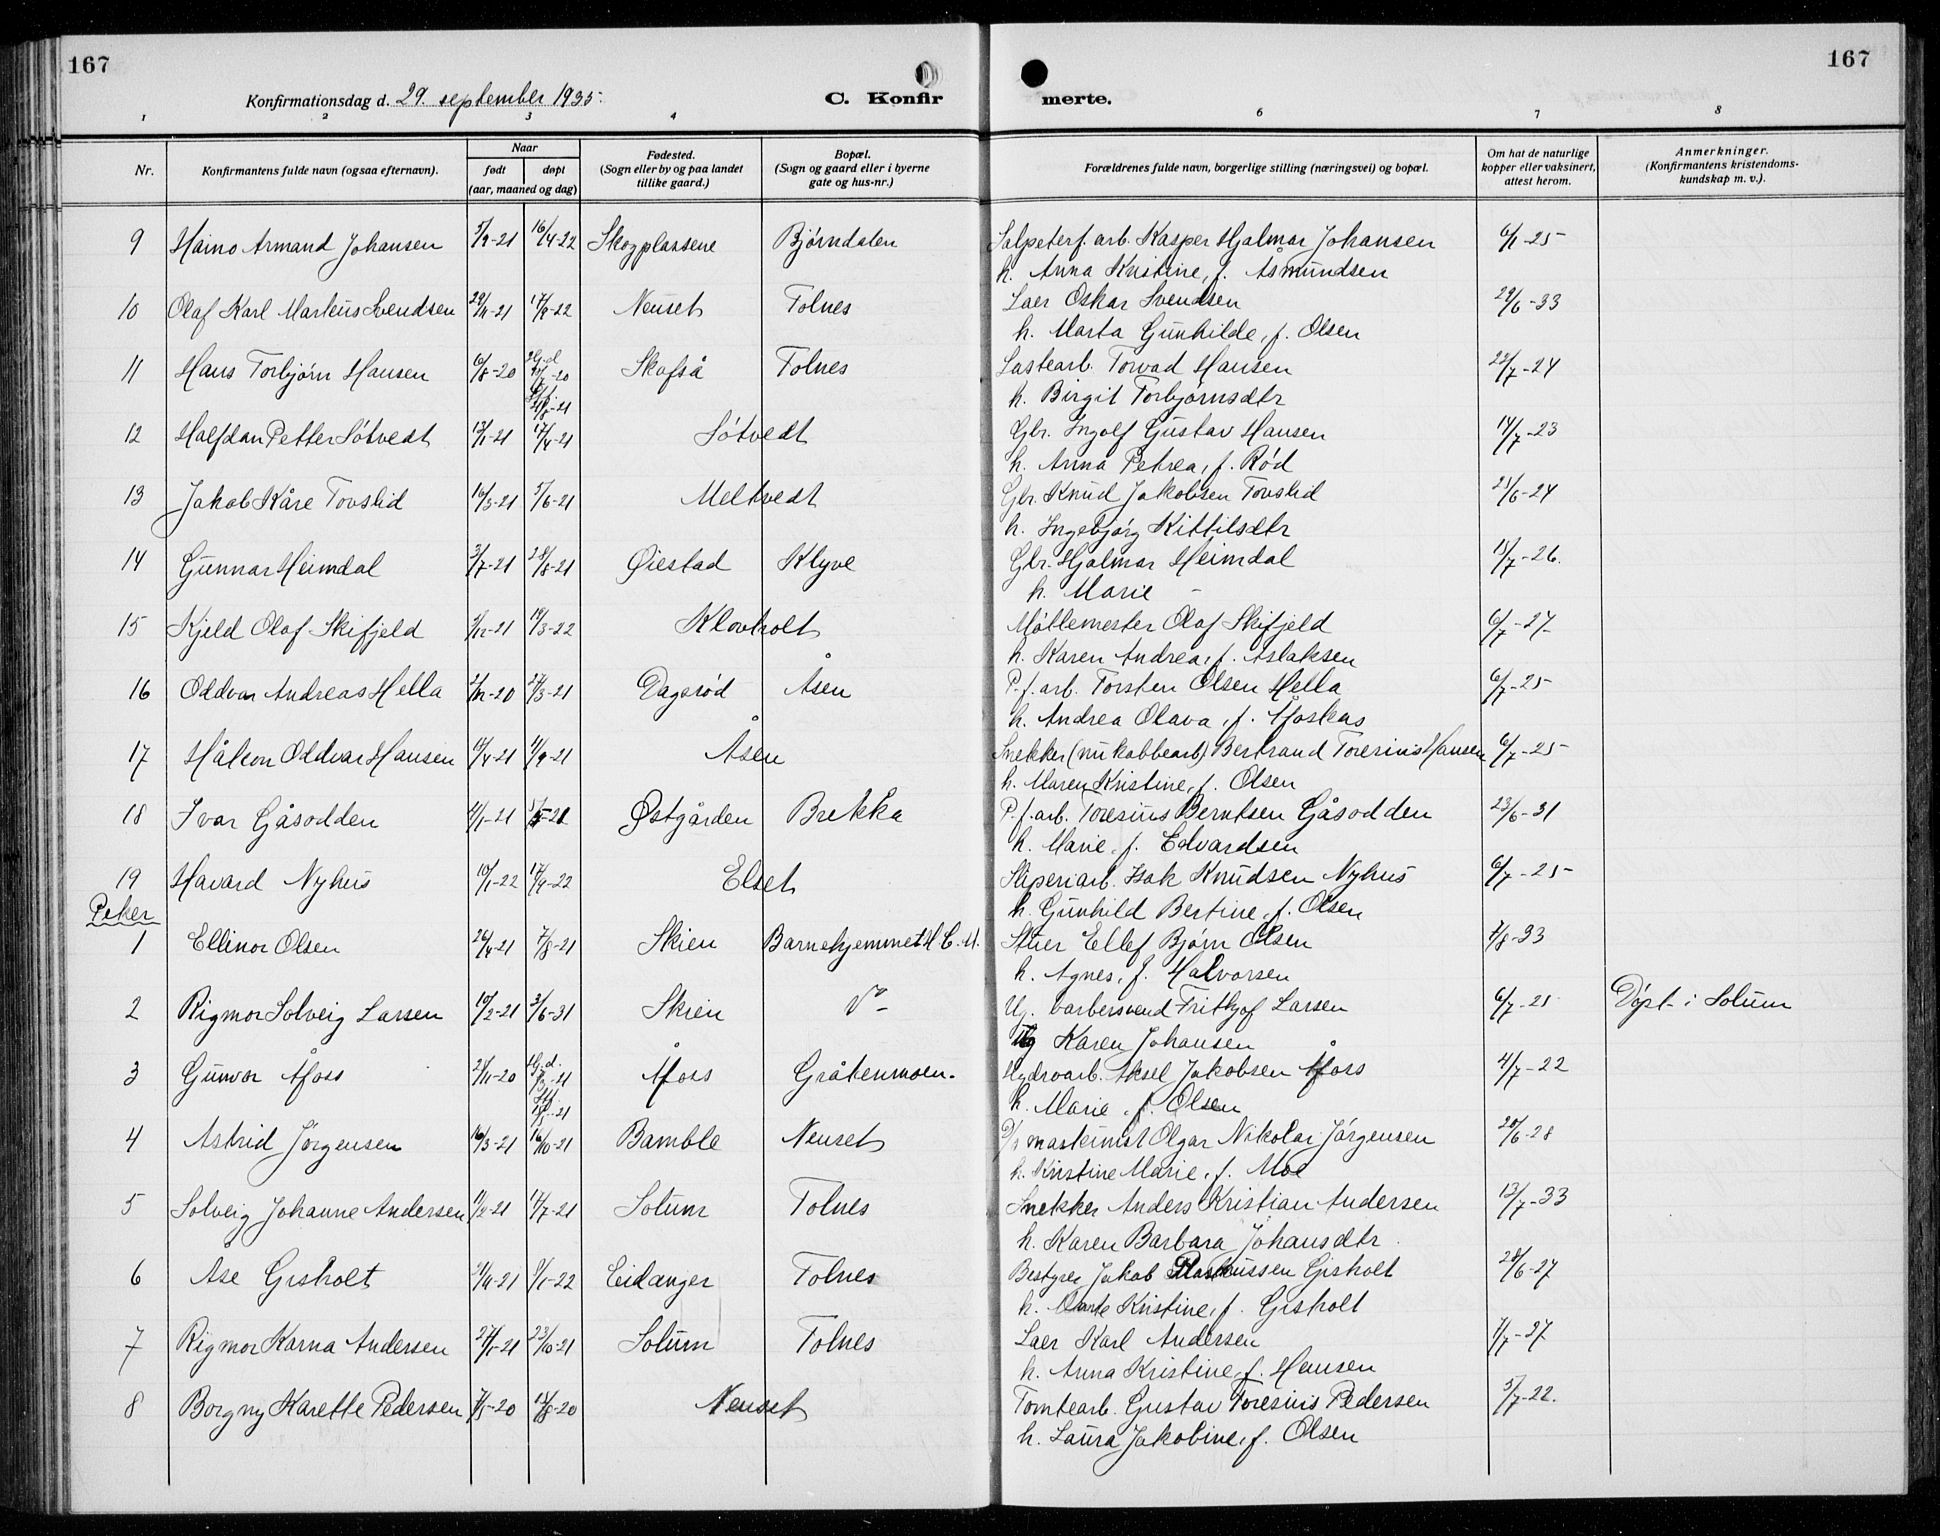 167
167
Konfirmationsdag d. 29. september 1935.
C. Konfirmerte.
1 2 3 4 6 7 8
Nr.
Konfirmantens fulde navn (ogsaa efternavn).
Naar
født døpt
(aar, maaned og dag)
Fødested.
(Sogn eller by og paa landet
tillike gaard.)
Bopæl.
(Sogn og gaard eller i byerne
gate og hus-nr.)
Forældrenes fulde navn, borgerlige stilling (næringsvei) og bopæl.
Om hat de naturlige
kopper eller vaksinert,
attest herom.
Anmerkninger.
(Konfirmantens kristendoms-
kundskap m. v.).
9 Haino Armand Johansen 5/9-21 16/4-22 Skogplassene Bjørndalen Salpeterf. arb. Kasper Hjalmar Johansen 6/1-25
h. Anna Kristine, f. Åsmundsen
10 Olaf Karl Markus Svendsen 29/11-21 17/9-22 Neuset Tolnes Laer Oskar Svendsen 29/6-33
h. Marta Gunhilde, f. Olsen
11 Hans Torbjørn Hansen 6/8-20 Skafså Tolnes Lastearb. Torvad Hansen 22/7-24
h. Birgit Torbjørnsdtr
12 Halfdan Petter Søtvedt 13/1-21 17/4-21 Søtvedt Gbr. Ingolf Gustav Hansen 14/7-23
h. Anna Petrea, f. Rød
13 Jakob Kåre Tovslid 16/3-21 5/6-21 Meltvedt Gbr. Knud Jakobsen Tovslid 25/6-24
h. Ingebjørg Kittilsdtr
14 Gunnar Heimdal 3/7-21 28/8-21 Øiestad Klyve Gbr. Hjalmar Heimdal 15/7-26.
h. Marie -
15 Kjeld Olaf Skifjeld 2/12-21 19/3-22 Klovholt Møllemester Olaf Skifjeld 6/7-27-
h. Karen Andrea, f. Aslaksen
16 Oddvar Andreas Hella 2/12-20 27/3-21 Dagsrød Åsen P.f.arb. Torsten Olsen Hella 6/7-25-
h. Andrea Olava, f. Åfoskås
17 Håkon Oddvar Hansen 10/4-21 11/9-21 Åsen Snekker (nu kabbearb) Bertrand Toresius Hansen 6/7-25-
h. Maren Kristine, f. Olsen
18 Ivar Gåsodden 4/1-21 5/5-21 Østgården Brekka P.f.arb. Toresius Berntsen Gåsodden 23/6-31
h. Marie, f. Edvardsen
19 Havard Nyhus 10/1-22 17/9-22 Elset Sliperiarb. Isak Knudsen Nyhus 6/7-25-
h. Gunhild Bertine, f. Olsen
Piker
1 Ellinor Olsen 26/4-21 7/8-21 Skien Barnehjemmet H.C.H. Stuer Ellef Bjørn Olsen 4/8-33
h. Agnes, f. Halvorsen
2 Rigmor Solveig Larsen 10/2-21 3/6-31 Skien Do - Ug. barbersvend Fritkjof Larsen 6/7-21 Døpt i Solum
Ug Karen Johansen
3 Gunvor Åfoss 21/11-20 Åfoss Gråtenmoen. Hydroarb. Aksel Jakobsen Åfoss 4/7-22
h. Marie, f. Olsen
4 Astrid Jørgensen 16/3-21 16/10-21 Bamble Neuset D/s maskinist Olgar Nikolai Jørgensen 28/6-28
h. Kristine Marie, f. Moe
5 Solveig Johanne Andersen 11/2-21 17/7-21 Solum Tolnes Snekker Anders Kristian Andersen 13/7-33
h. Karen Barbara Johansdtr.
6 Åse Gisholt 21/11-21 8/1-22 Eidanger Tolnes Bestyrer Jakob Rasmussen Gisholt 28/6-27
h. Kristine, f. Gisholt
7 Rigmor Karna Andersen 27/1-21 23/10-21 Solum Tolnes Laer Karl Andersen 7/7-27
h. Anna Kristine, f. Hansen
8 Borgny Karette Pedersen 7/5-20 15/8-20 Neuset Tomtearb. Gustav Toresius Pedersen 5/7-22.
h. Laura Jakobine, f. Olsen